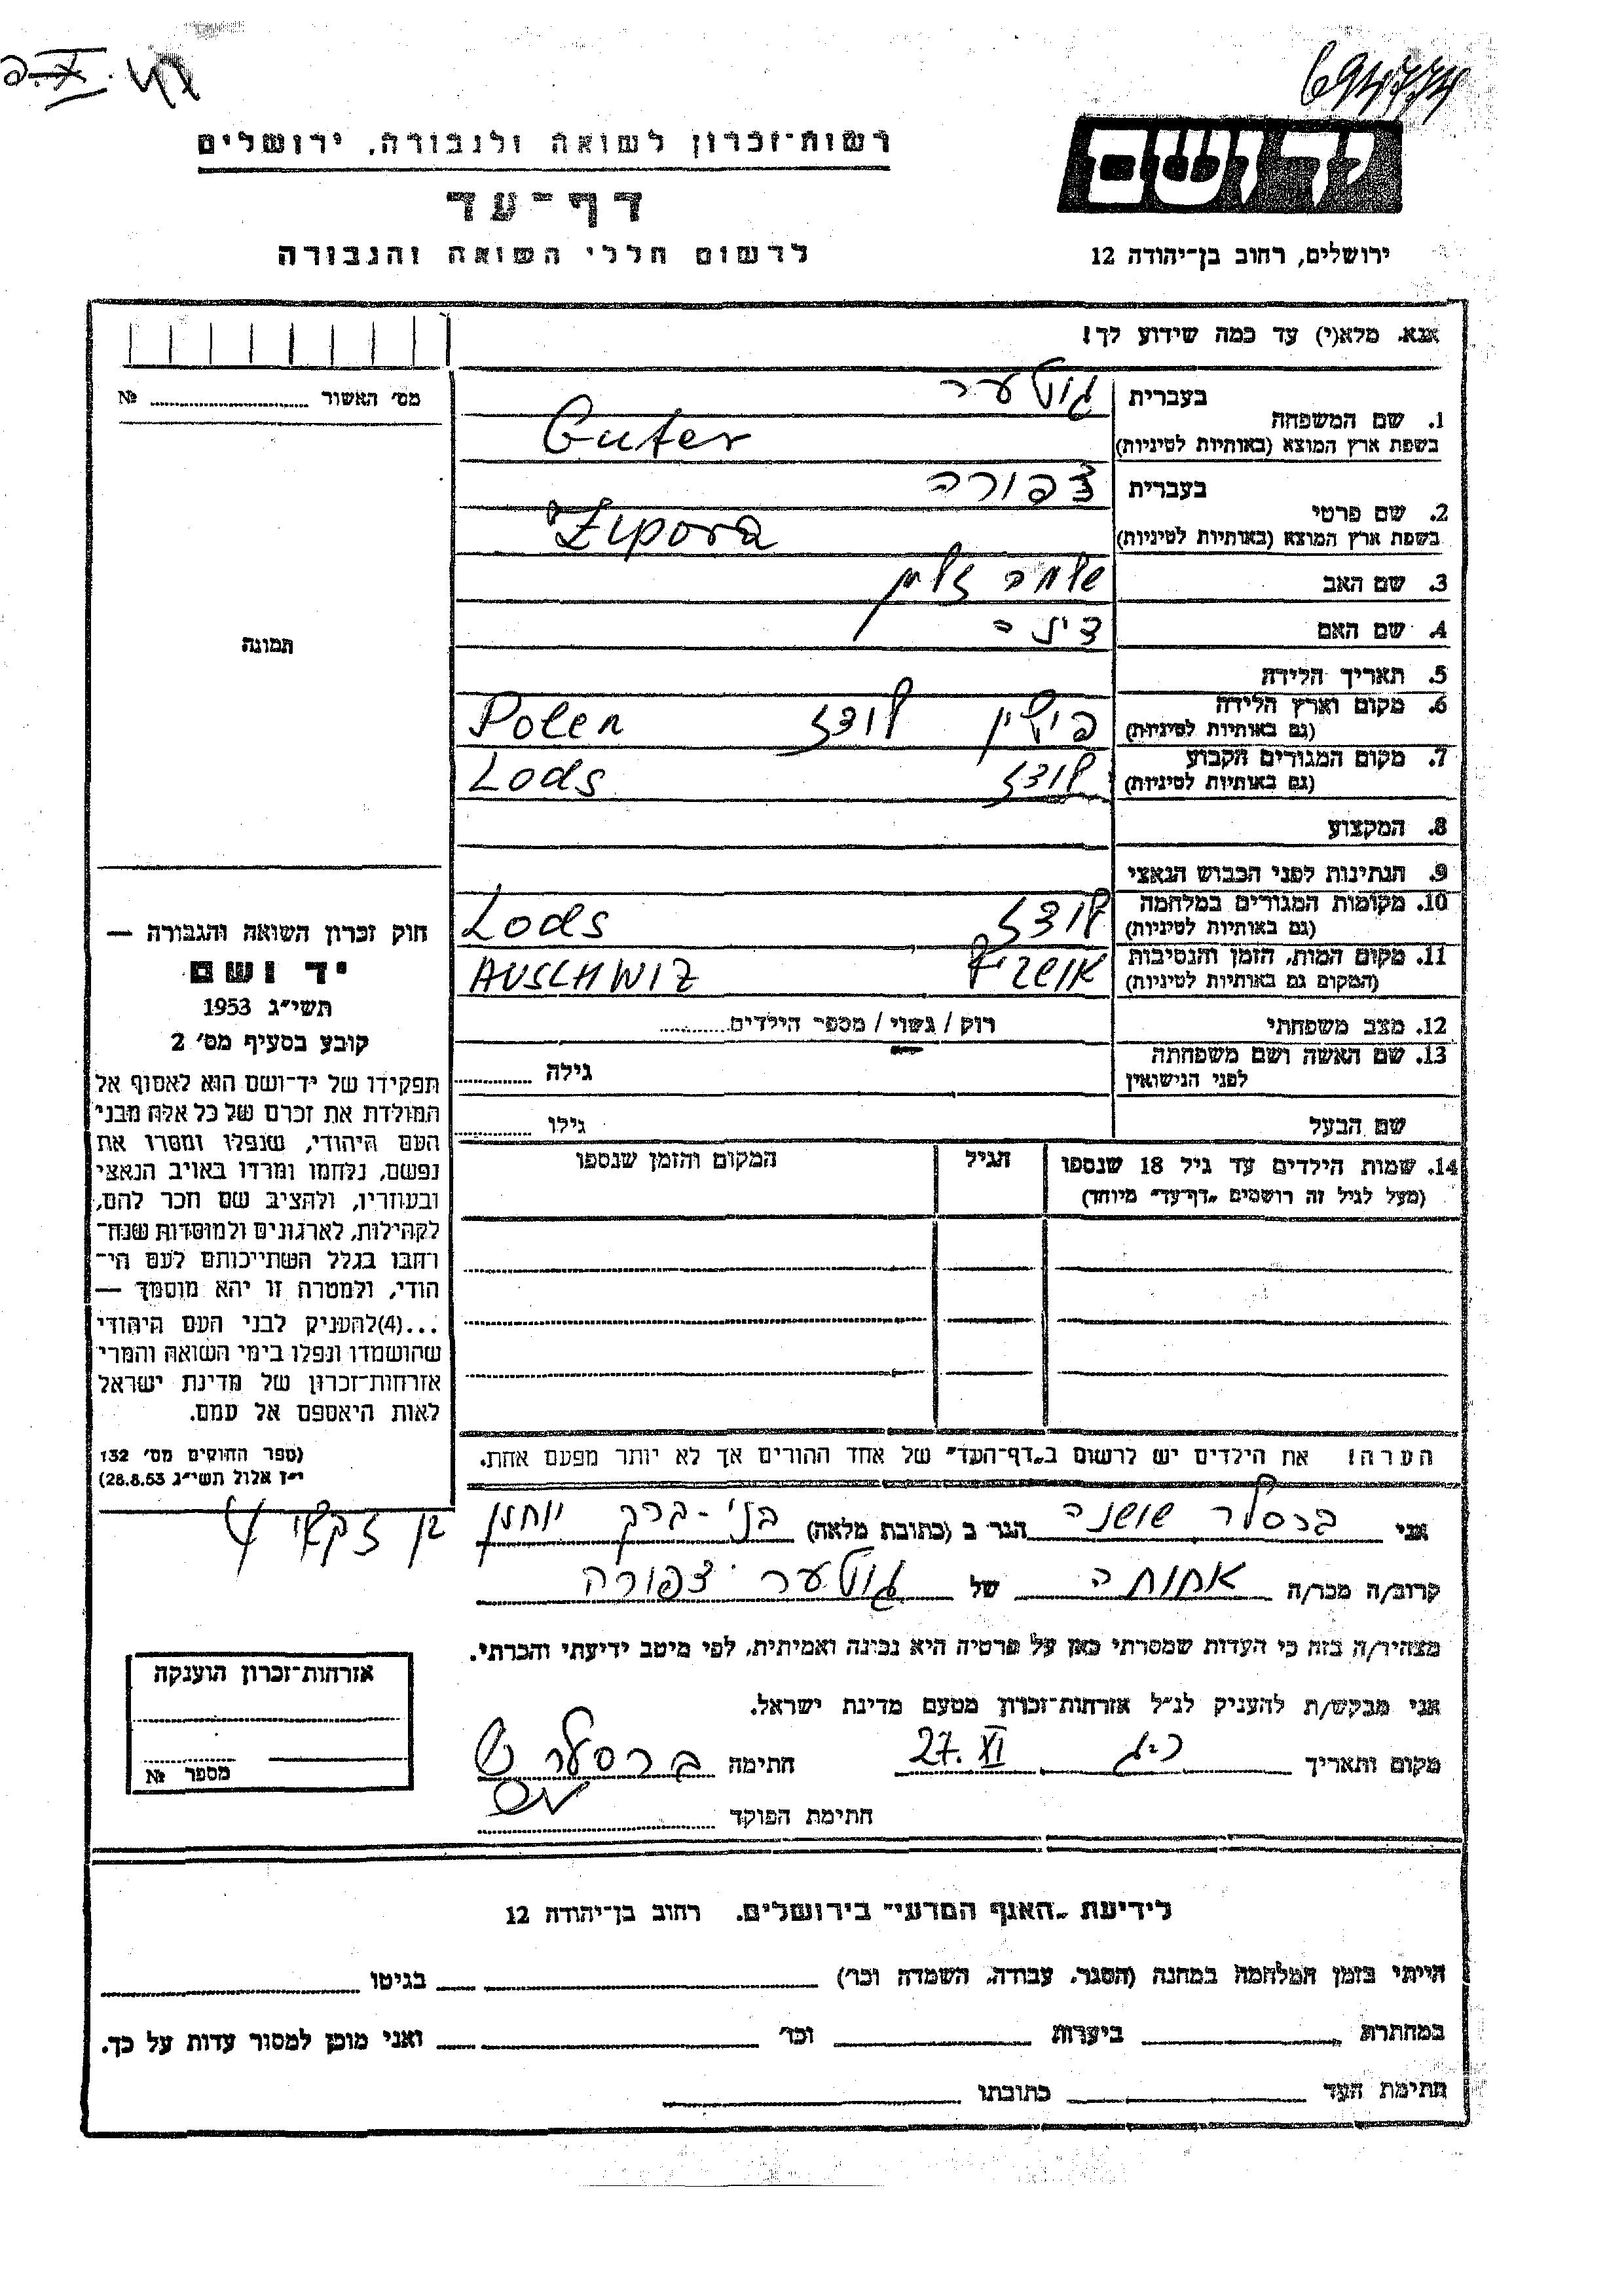 רשות־זכרון לשואה ולגבורה, ירושלים
דף־עד
לרשום חללי השואה והגבורה
יד ושם
ירושלים, רחוב בן־יהודה 12
אנא, מלא(י) עד כמה שידוע לך!
מס׳ האשור № 
1. שם המשפחה
בעברית גוטער
בשפת ארץ המוצא (באותיות לטיניות) Guter
2. שם פרטי
בעברית צפורה
בשפת ארץ המוצא (באותיות לטיניות) Zipora
3. שם האב שלמה זלמן
4. שם האם דינה
5. תאריך הלידה
6. מקום וארץ הלידה (גם באותיות לטיניות) פוילין לודז Polen
7. מקום המגורים הקבוע (גם באותיות לטיניות) לודז Lods
8. המקצוע
9. הנתינות לפני הכבוש הנאצי
10. מקומות המגורים במלחמה (גם באותיות לטיניות) לודז Lods
11. מקום המות, הזמן והנסיבות (המקום גם באותיות לטיניות) אושביץ AUSCHWIZ
12. מצב משפחתי רוק / נשוי / מספר הילדים
13. שם האשה ושם משפחתה לפני הנישואין גילה
שם הבעל גילו
14. שמות הילדים עד גיל 18 שנספו הגיל המקום והזמן שנספו
(מעל לגיל זה רושמים „דף־עד״ מיוחד)
הערה! את הילדים יש לרשום ב„דף־העד״ של אחד ההורים אך לא יותר מפעם אחת.
תמונה
חוק זכרון השואה והגבורה —
יד ושם
תשי״ג 1953
קובע בסעיף מס׳ 2
תפקידו של יד־ושם הוא לאסוף אל
המולדת את זכרם של כל אלה מבני
העם היהודי, שנפלו ומסרו את
נפשם, נלחמו ומרדו באויב הנאצי
ובעוזריו, ולהציב שם וזכר להם,
לקהילות, לארגונים ולמוסדות שנח־
רחבו בגלל השתייכותם לעם הי־
הודי, ולמטרה זו יהא מוסמך —
...(4)להעניק לבני העם היהודי
שהושמדו ונפלו בימי השואה והמרי
אזרחות־זכרון של מדינת ישראל
לאות היאספם אל עמם.
(ספר החוקים מס׳ 132
י״ז אלול תשי״ג 28.8.53)
אני ברסלר שושנה הגר ב (כתובת מלאה) בני-ברק יוחנן בן זכאי 4
קרוב/ה מכר/ה אחותה של גוטער צפורה
מצהיר/ה בזה כי העדות שמסרתי כאן על פרטיה היא נכונה ואמיתית, לפי מיטב ידיעתי והכרתי.
אני מבקש/ת להעניק לנ״ל אזרחות־זכרון מטעם מדינת ישראל.
מקום ותאריך 27. XI חתימה ברסלער ש
חתימת הפוקד
אזרחות־זכרון הוענקה
מספר №
לידיעת „האגף המדעי״ בירושלים, רחוב בן־יהודה 12
הייתי בזמן המלחמה במחנה (הסגר, עבודה, השמדה וכו׳) בגיטו
במחתרת ביערות וכו׳ ואני מוכן למסור עדות על כך.
חתימת העד כתובתו